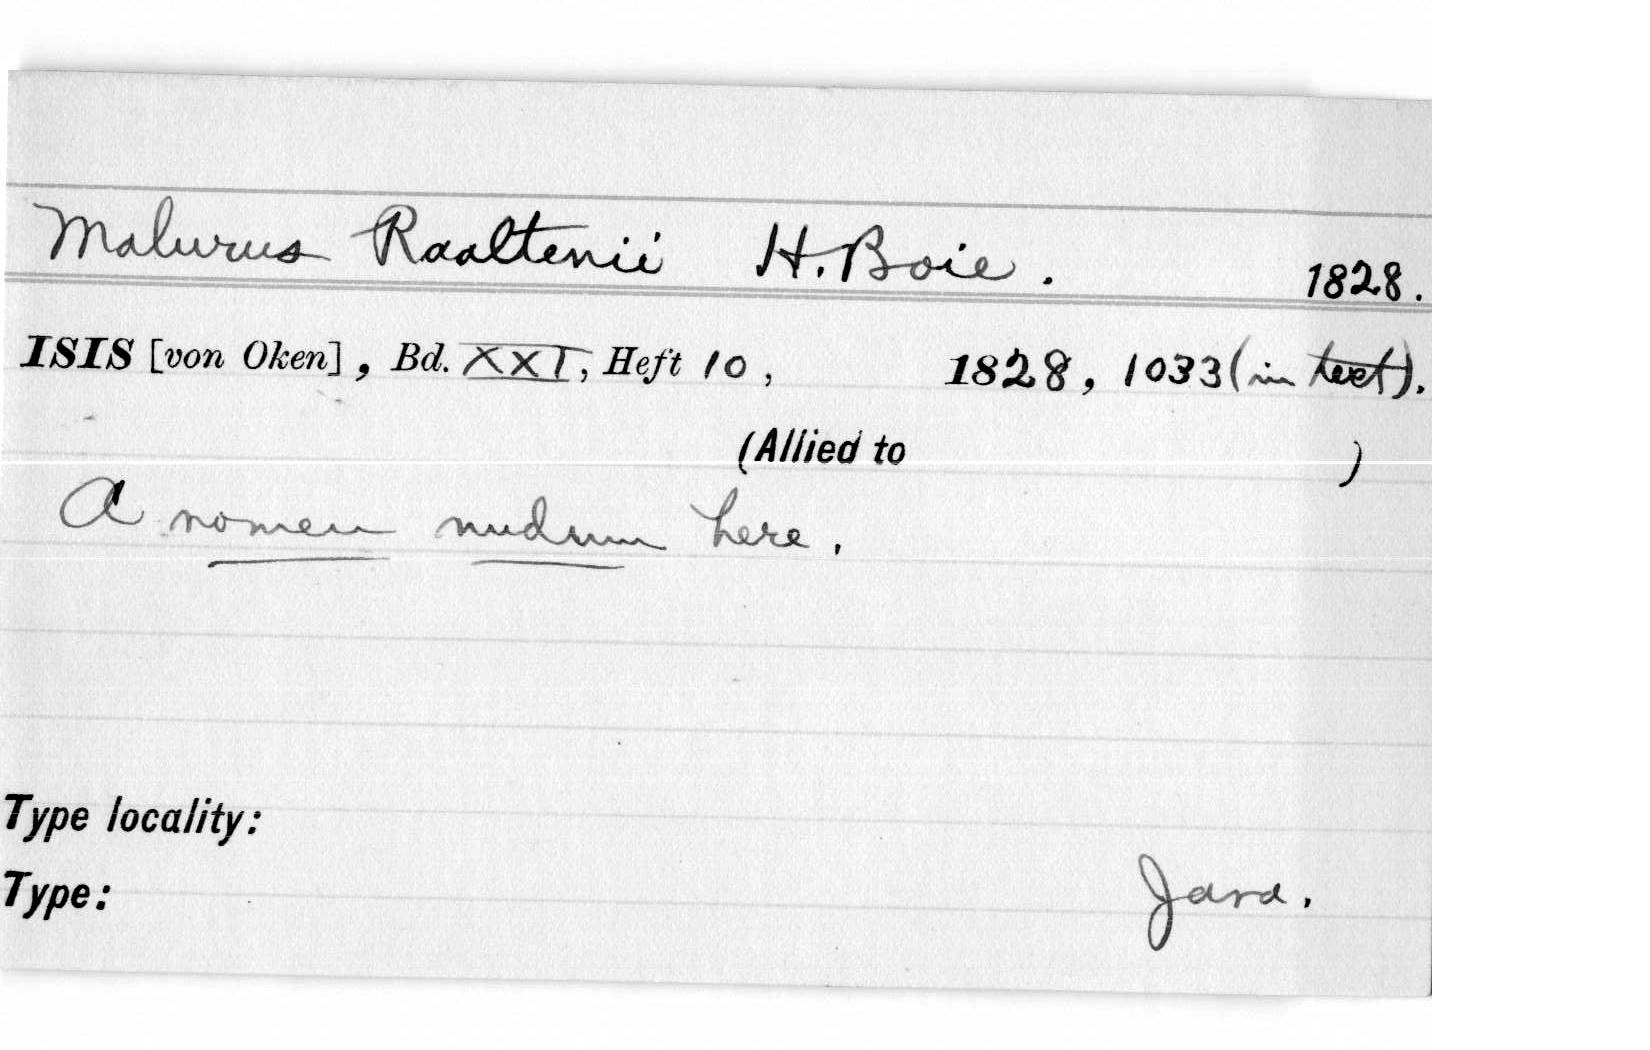 Malurus Raaltenii H. Boie. 1828.
ISIS [von Oken], Bd. XXI, Heft 10, 1828, 1033 (in text).
(Allied to )
A nomen nudum here.
Type locality:
Type: Java.